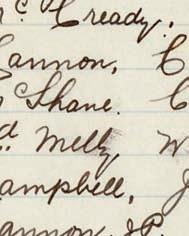 c. Cready.
annon, C
c Shane. C
d. Melly, W
ampbell, J
annon, J.P.